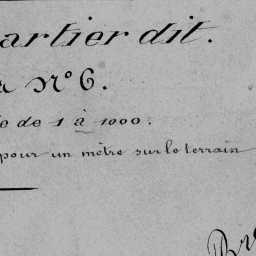 artier dit.
N° 6.
e de 1 à 1000.
pour un mètre sur le terrain